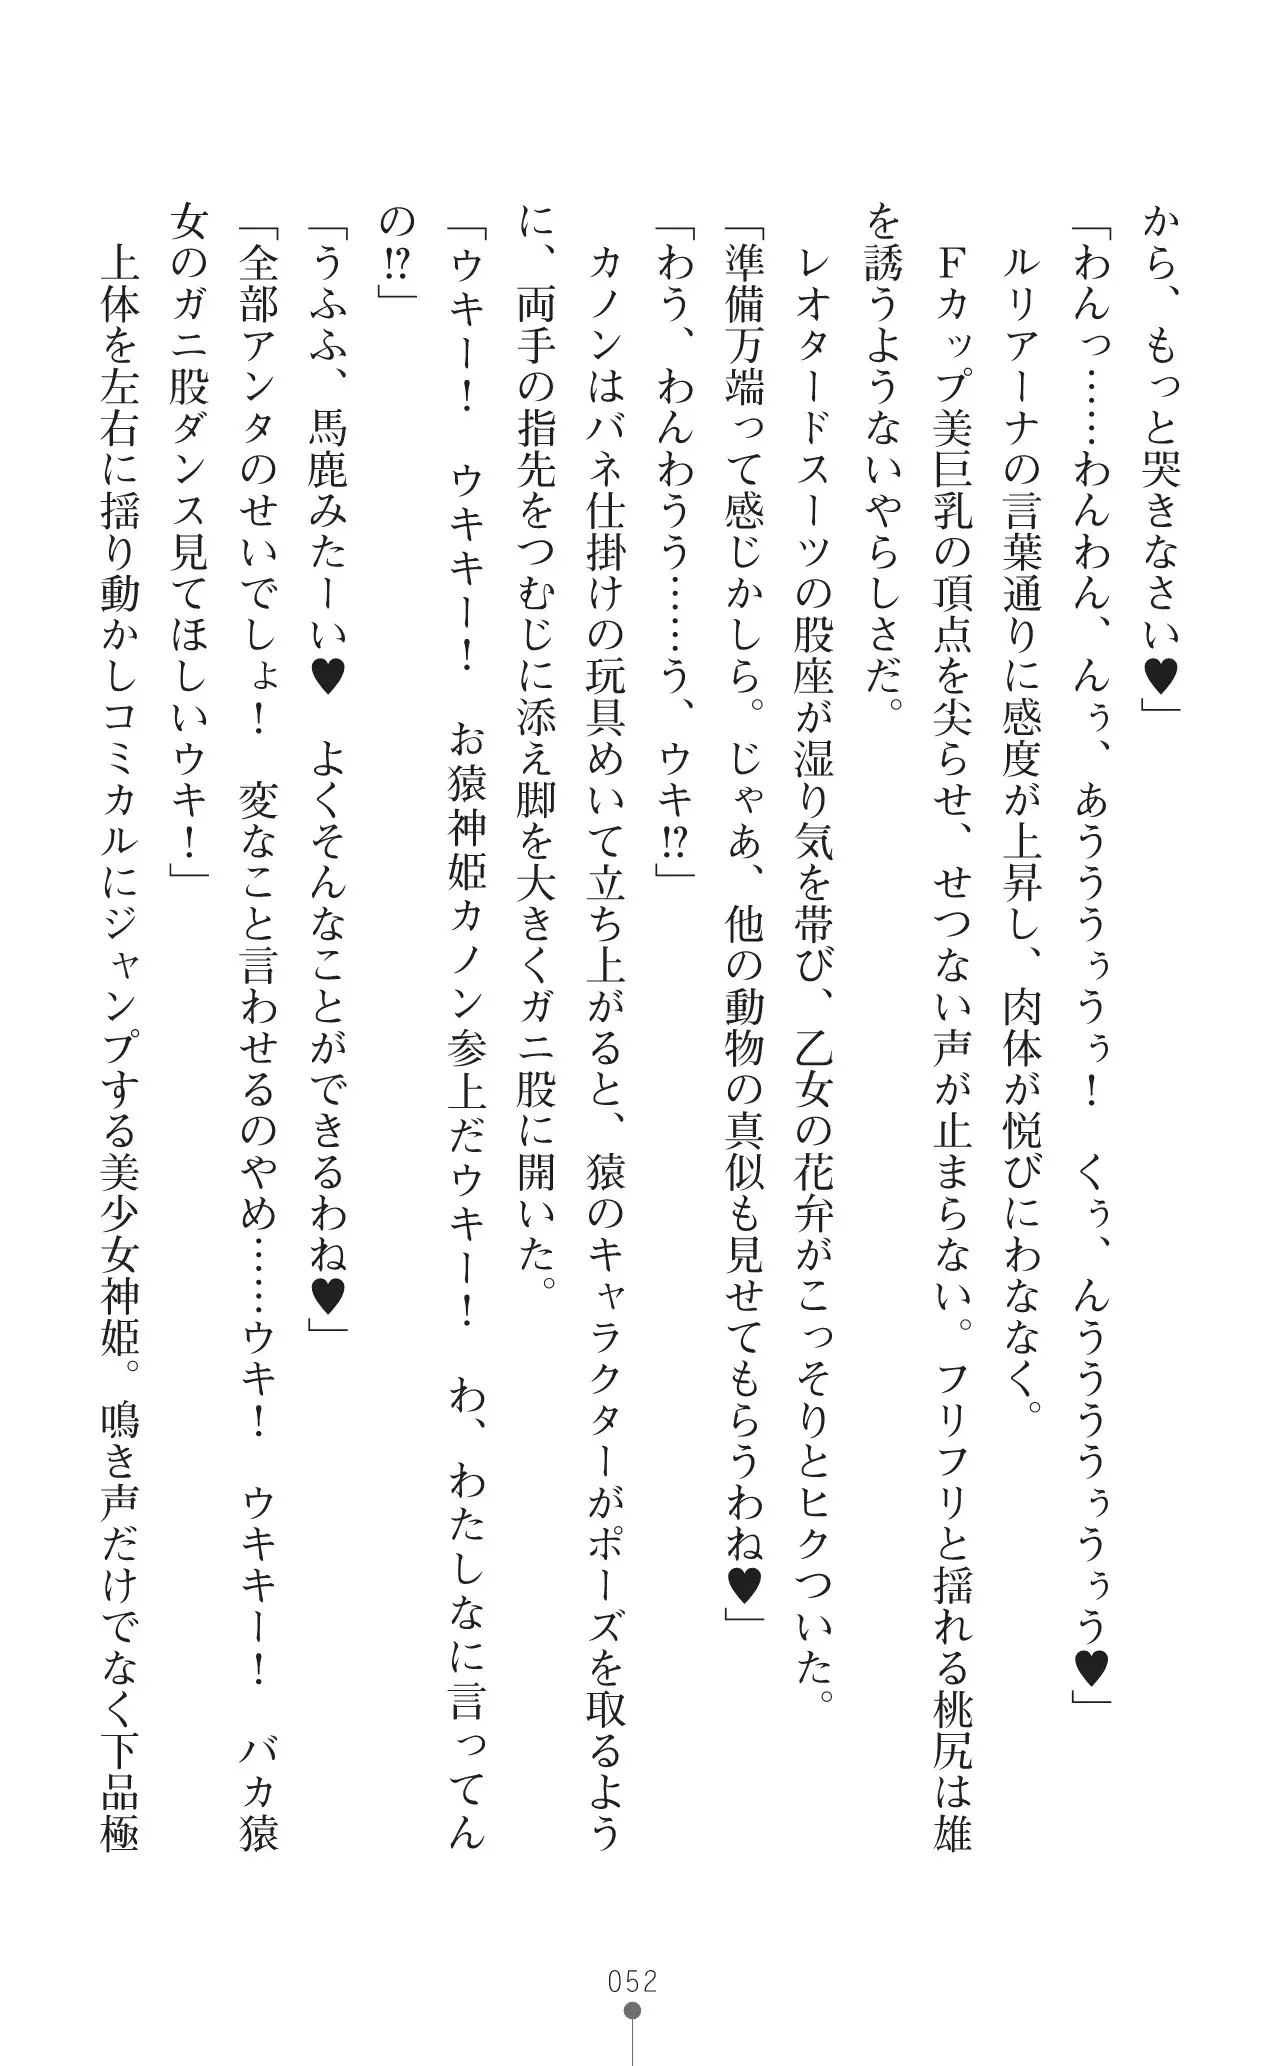 から、もっと哭きなさい♥」
「わんっ……わんわん、んぅ、あうううぅうぅ！　くぅ、んううううぅうぅう♥」
　ルリアーナの言葉通りに感度が上昇し、肉体が悦びにわななく。
　Ｆカップ美巨乳の頂点を尖らせ、せつない声が止まらない。フリフリと揺れる桃尻は雄
を誘うようないやらしさだ。
　レオタードスーツの股座が湿り気を帯び、乙女の花弁がこっそりとヒクついた。
「準備万端って感じかしら。じゃあ、他の動物の真似も見せてもらうわね♥」
「わう、わんわうう……う、ウキ!?」
　カノンはバネ仕掛けの玩具めいて立ち上がると、猿のキャラクターがポーズを取るよう
に、両手の指先をつむじに添え脚を大きくガニ股に開いた。
「ウキー！　ウキキー！　お猿神姫カノン参上だウキー！　わ、わたしなに言ってん
の!?」
「うふふ、馬鹿みたーい♥　よくそんなことができるわね♥」
「全部アンタのせいでしょ！　変なこと言わせるのやめ……ウキ！　ウキキー！　バカ猿
女のガニ股ダンス見てほしいウキ！」
　上体を左右に揺り動かしコミカルにジャンプする美少女神姫。鳴き声だけでなく下品極
052